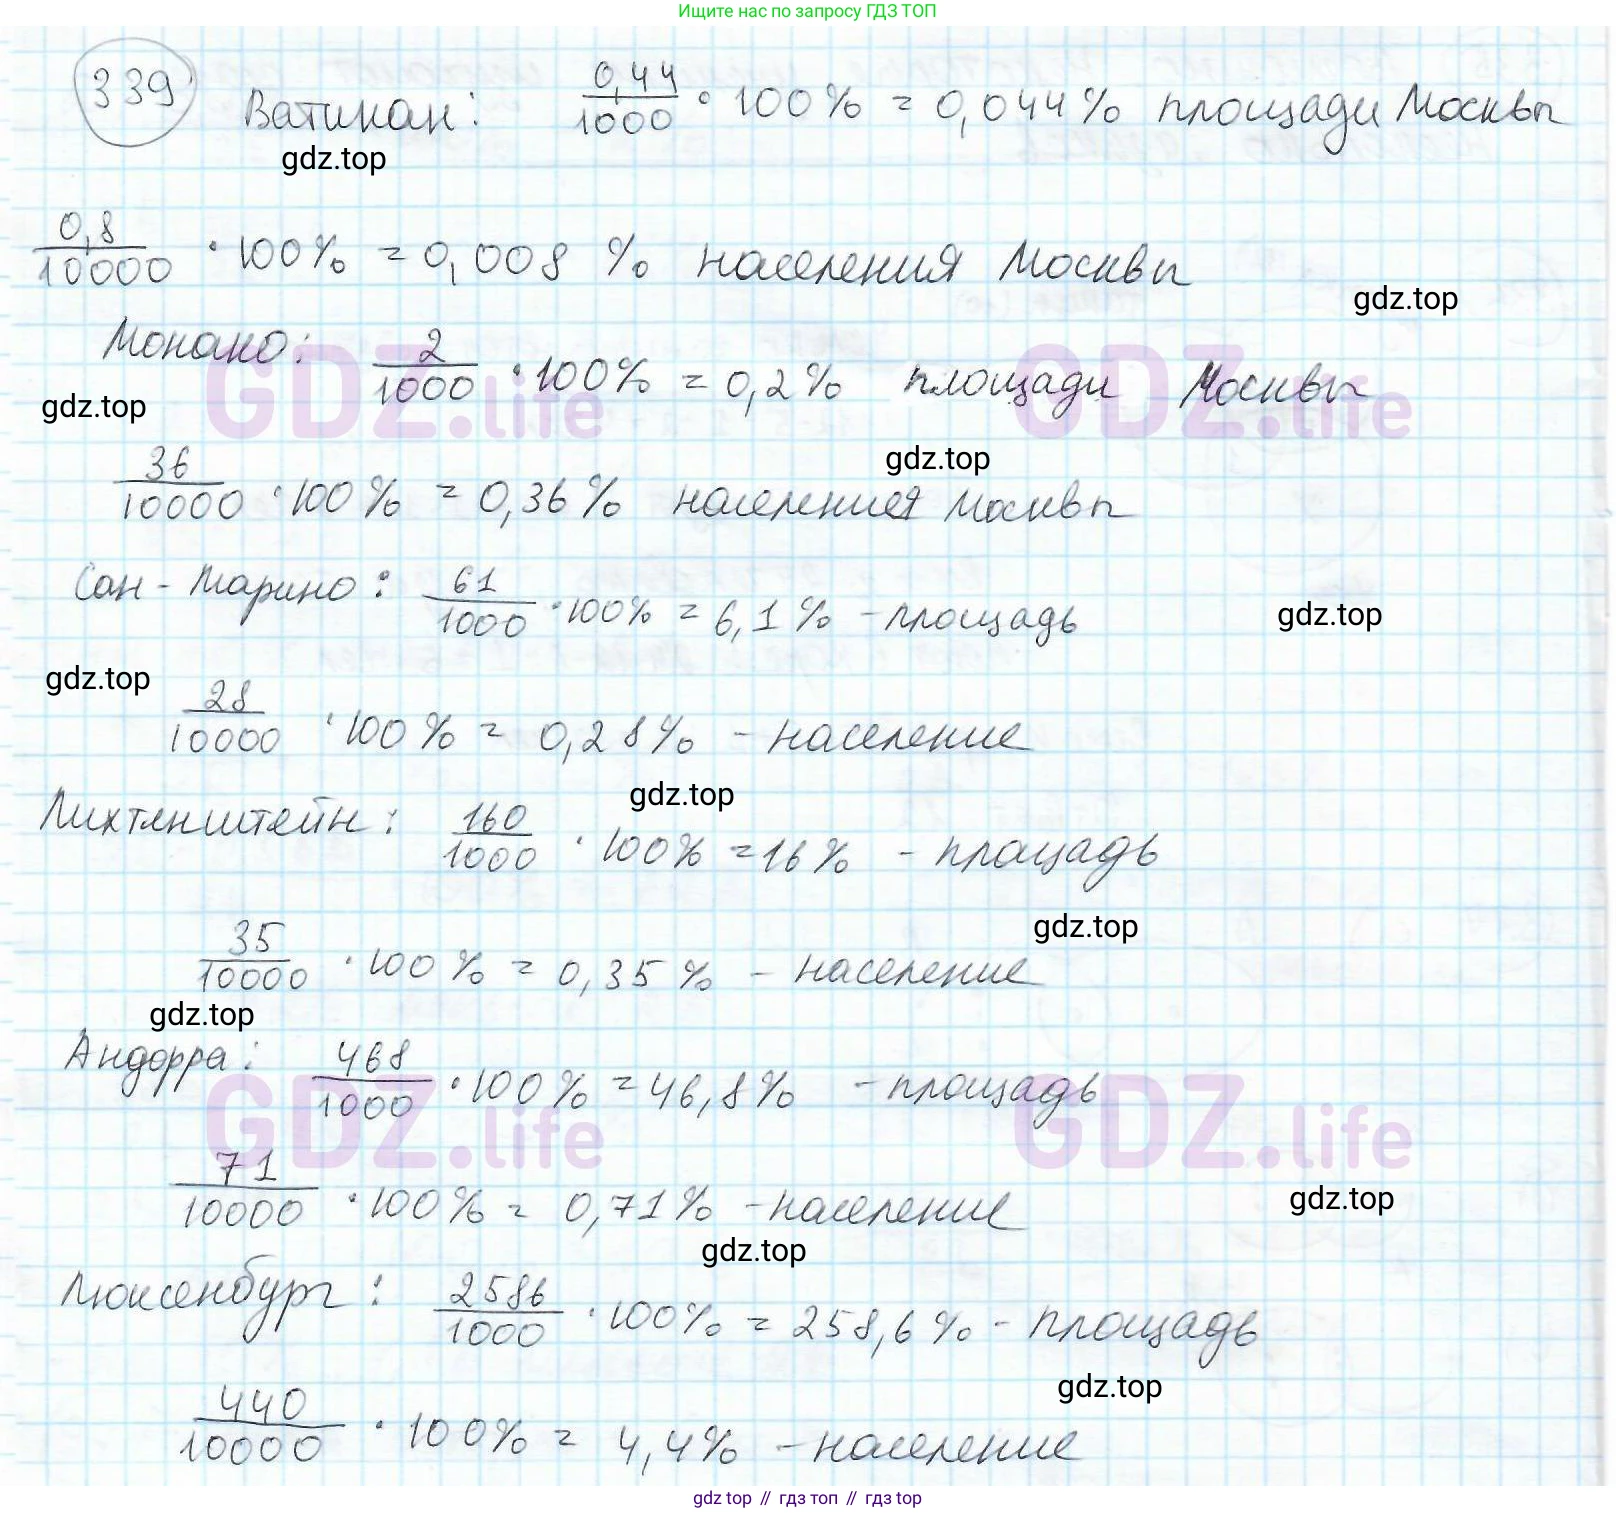 Ищите нас по запросу ГДЗ ТОП
339 Ватикан: 0,44/1000 · 100% = 0,044% площади Москвы
gdz.top
0,8/10000 · 100% = 0,008 % населения Москвы
gdz.top
Монако: 2/1000 · 100% = 0,2% площади Москвы
GDZ.life GDZ.life
gdz.top
gdz.top
36/10000 · 100% = 0,36% населения Москвы
Сан-Марино: 61/1000 · 100% = 6,1% - площадь
gdz.top
gdz.top
28/10000 · 100% = 0,28% - население
gdz.top
Лихтенштейн: 160/1000 · 100% = 16% - площадь
gdz.top
35/10000 · 100% = 0,35% - население
gdz.top
Андорра: 468/1000 · 100% = 46,8% - площадь
GDZ.life GDZ.life
71/10000 · 100% = 0,71% - население
gdz.top
gdz.top
Люксенбург: 2586/1000 · 100% = 258,6% - площадь
gdz.top
440/10000 · 100% = 4,4% - население
gdz top // гдз топ // гдз top